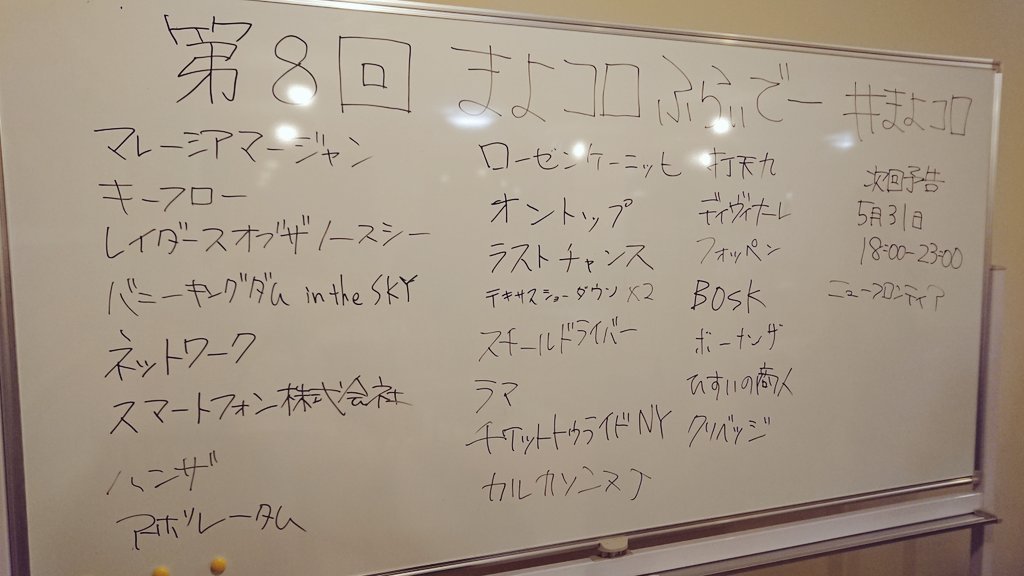 第8回 まよコロふらいでー #まよコロ
マレーシアマージャン
キーフロー
レイダースオブザノースシー
バニーキングダム in the SKY
ネットワーク
スマートフォン株式会社
ハンザ
アボレータム
ローゼンケーニッヒ
オントップ
ラストチャンス
テキサスショーダウン ×2
スチールドライバー
ラマ
チケットトゥライドNY
カルカソンヌJ
打天九
ディヴィナーレ
フォッペン
BOSK
ボーナンザ
ひすいの商人
クリベッジ
次回予告
5月31日
18:00-23:00
ニューフロンティア